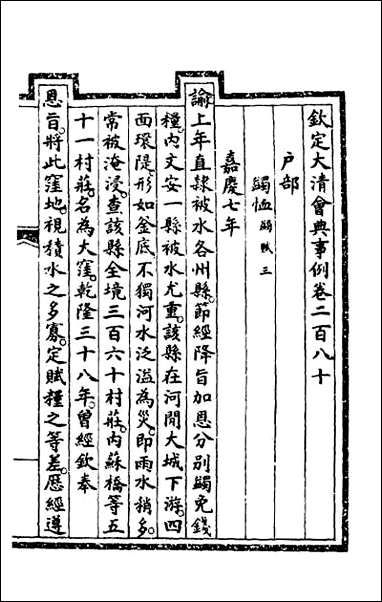 欽定大清會典事例卷二百八十
戶部
蠲恤蠲賦三
嘉慶七年
諭上年直隷被水各州縣節經降旨加恩分別蠲免錢
糧內文安一縣被水尤重該縣在河閒大城下游四
面環隄形如釜底不獨河水泛溢為災即雨水稍多
常被淹浸查該縣全境三百六十村莊內蘇橋等五
十一村莊名為大窪乾隆三十八年曾經欽奉
恩旨將此窪地視積水之多寡定賦糧之等差歷經遵